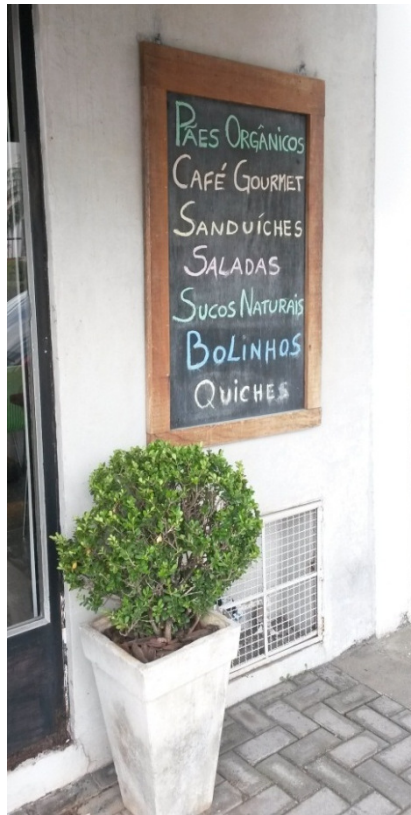 PÃES ORGÂNICOS
CAFÉ GOURMET
SANDUÍCHES
SALADAS
SUCOS NATURAIS
BOLINHOS
QUICHES